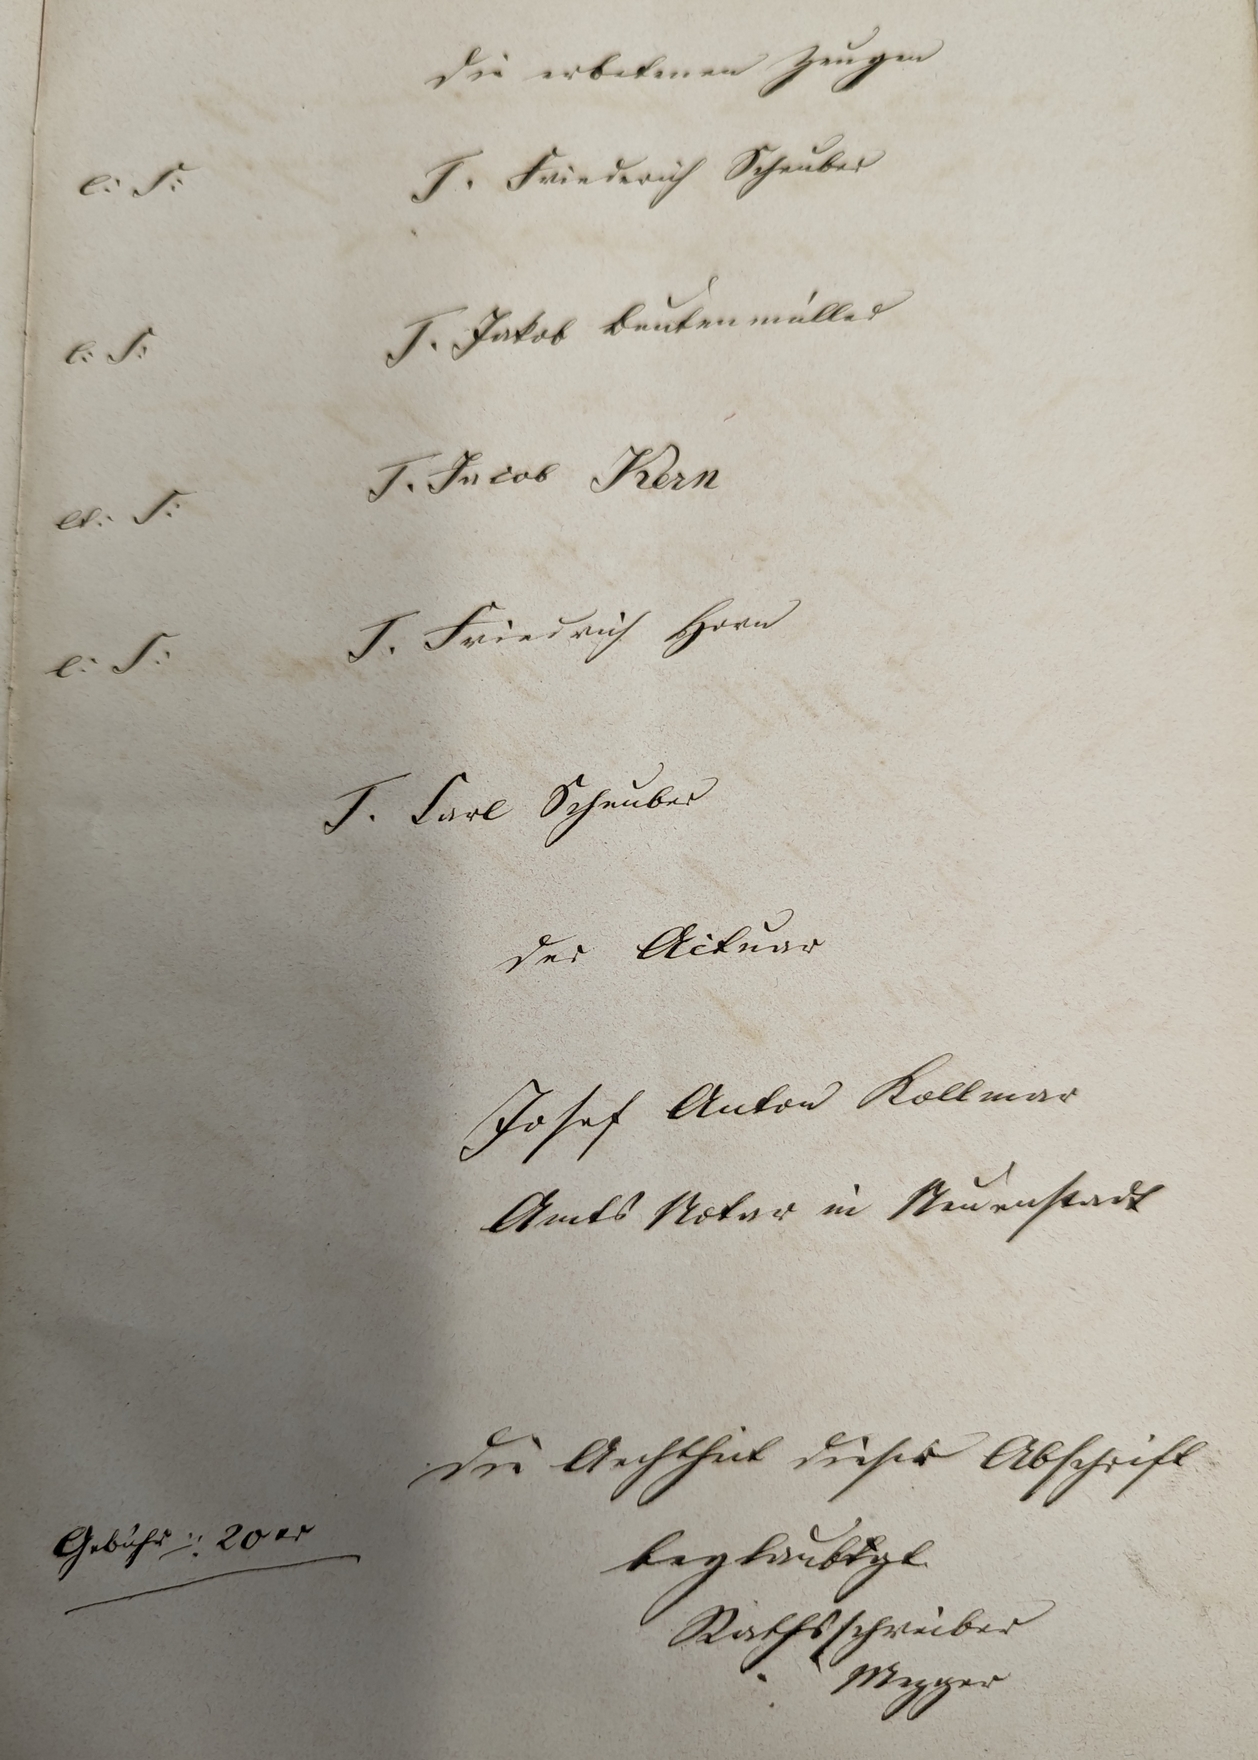 Die erbetenen Zeugen
L: S: T. Friederich Scheuber
L: S: T. Jakob Beutenmüller
L: S: T. Jacob Kern
L: S: T. Friedrich Horn
T. Carl Scheuber
Der Actuar
Josef Anton Kollmar
Amts Notar in Neuenstadt
Die Aechtheit dieser Abschrift
Gebühr :/: 20 beglaubigt
Rathsschreiber
Mezger